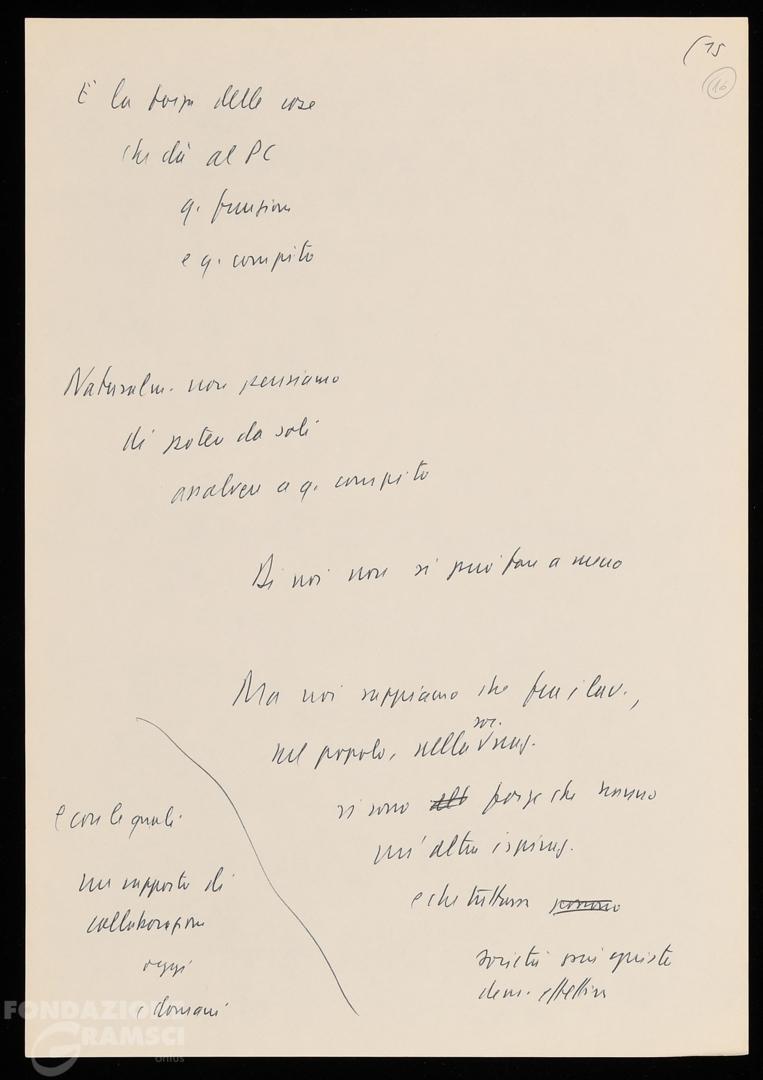 (15
16
È la forza delle cose
che dà al PC
q. funzione
e q. compito
Naturalm. non pensiamo
di poter da soli
assolvere a q. compito
Di noi non si può fare a meno
Ma noi sappiamo che fra i lav.,
soc.
nel popolo, nella
si sono forze che hanno
un'altra ispiraz.
e che tuttavia
società
dem. effettiva
e con le quali
un rapporto di
collaborazione
oggi
e domani
FONDAZIONE
GRAMSCI
onlus